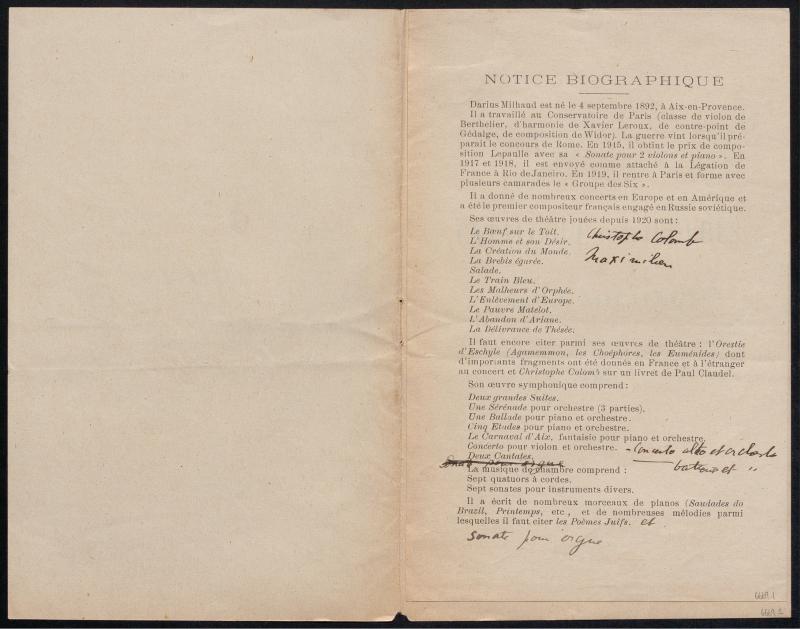 NOTICE BIOGRAPHIQUE
Darius Milhaud est né le 4 septembre 1892, à Aix-en-Provence.
Il a travaillé au Conservatoire de Paris (classe de violon de
Berthelier, d'harmonie de Xavier Leroux, de contre-point de
Gédalge, de composition de Widor). La guerre vint lorsqu'il pré-
parait le concours de Rome. En 1915, il obtint le prix de compo-
sition Lepaulle avec sa « Sonate pour 2 violons et piano ». En
1917 et 1918, il est envoyé comme attaché à la Légation de
France à Rio de Janeiro. En 1919, il rentre à Paris et forme avec
plusieurs camarades le « Groupe des Six ».
Il a donné de nombreux concerts en Europe et en Amérique et
a été le premier compositeur français engagé en Russie soviétique.
Ses œuvres de théâtre jouées depuis 1920 sont :
Le Bœuf sur le Toit.
Christophe Colomb
L'Homme et son Désir.
La Création du Monde.
Maximilien
La Brebis égarée.
Salade.
Le Train Bleu.
Les Malheurs d'Orphée.
L'Enlèvement d'Europe.
Le Pauvre Matelot.
L'Abandon d'Ariane.
La Délivrance de Thésée.
Il faut encore citer parmi ses œuvres de théâtre : l'Orestie
d'Eschyle (Agamemnon, les Choéphores, les Euménides) dont
d'importants fragments ont été donnés en France et à l'étranger
au concert et Christophe Colomb sur un livret de Paul Claudel.
Son œuvre symphonique comprend :
Deux grandes Suites.
Une Sérénade pour orchestre (3 parties).
Une Ballade pour piano et orchestre.
Cinq Etudes pour piano et orchestre.
Le Carnaval d'Aix, fantaisie pour piano et orchestre.
Concerto pour violon et orchestre. - Concerto alto et orchestre
Deux Cantates.
batterie et "
Sonate pour orgue
La musique de chambre comprend :
Sept quatuors à cordes.
Sept sonates pour instruments divers.
Il a écrit de nombreux morceaux de pianos (Saudades do
Brazil, Printemps, etc., et de nombreuses mélodies parmi
lesquelles il faut citer les Poèmes Juifs. et
sonate pour orgue
6669.1
6669.2